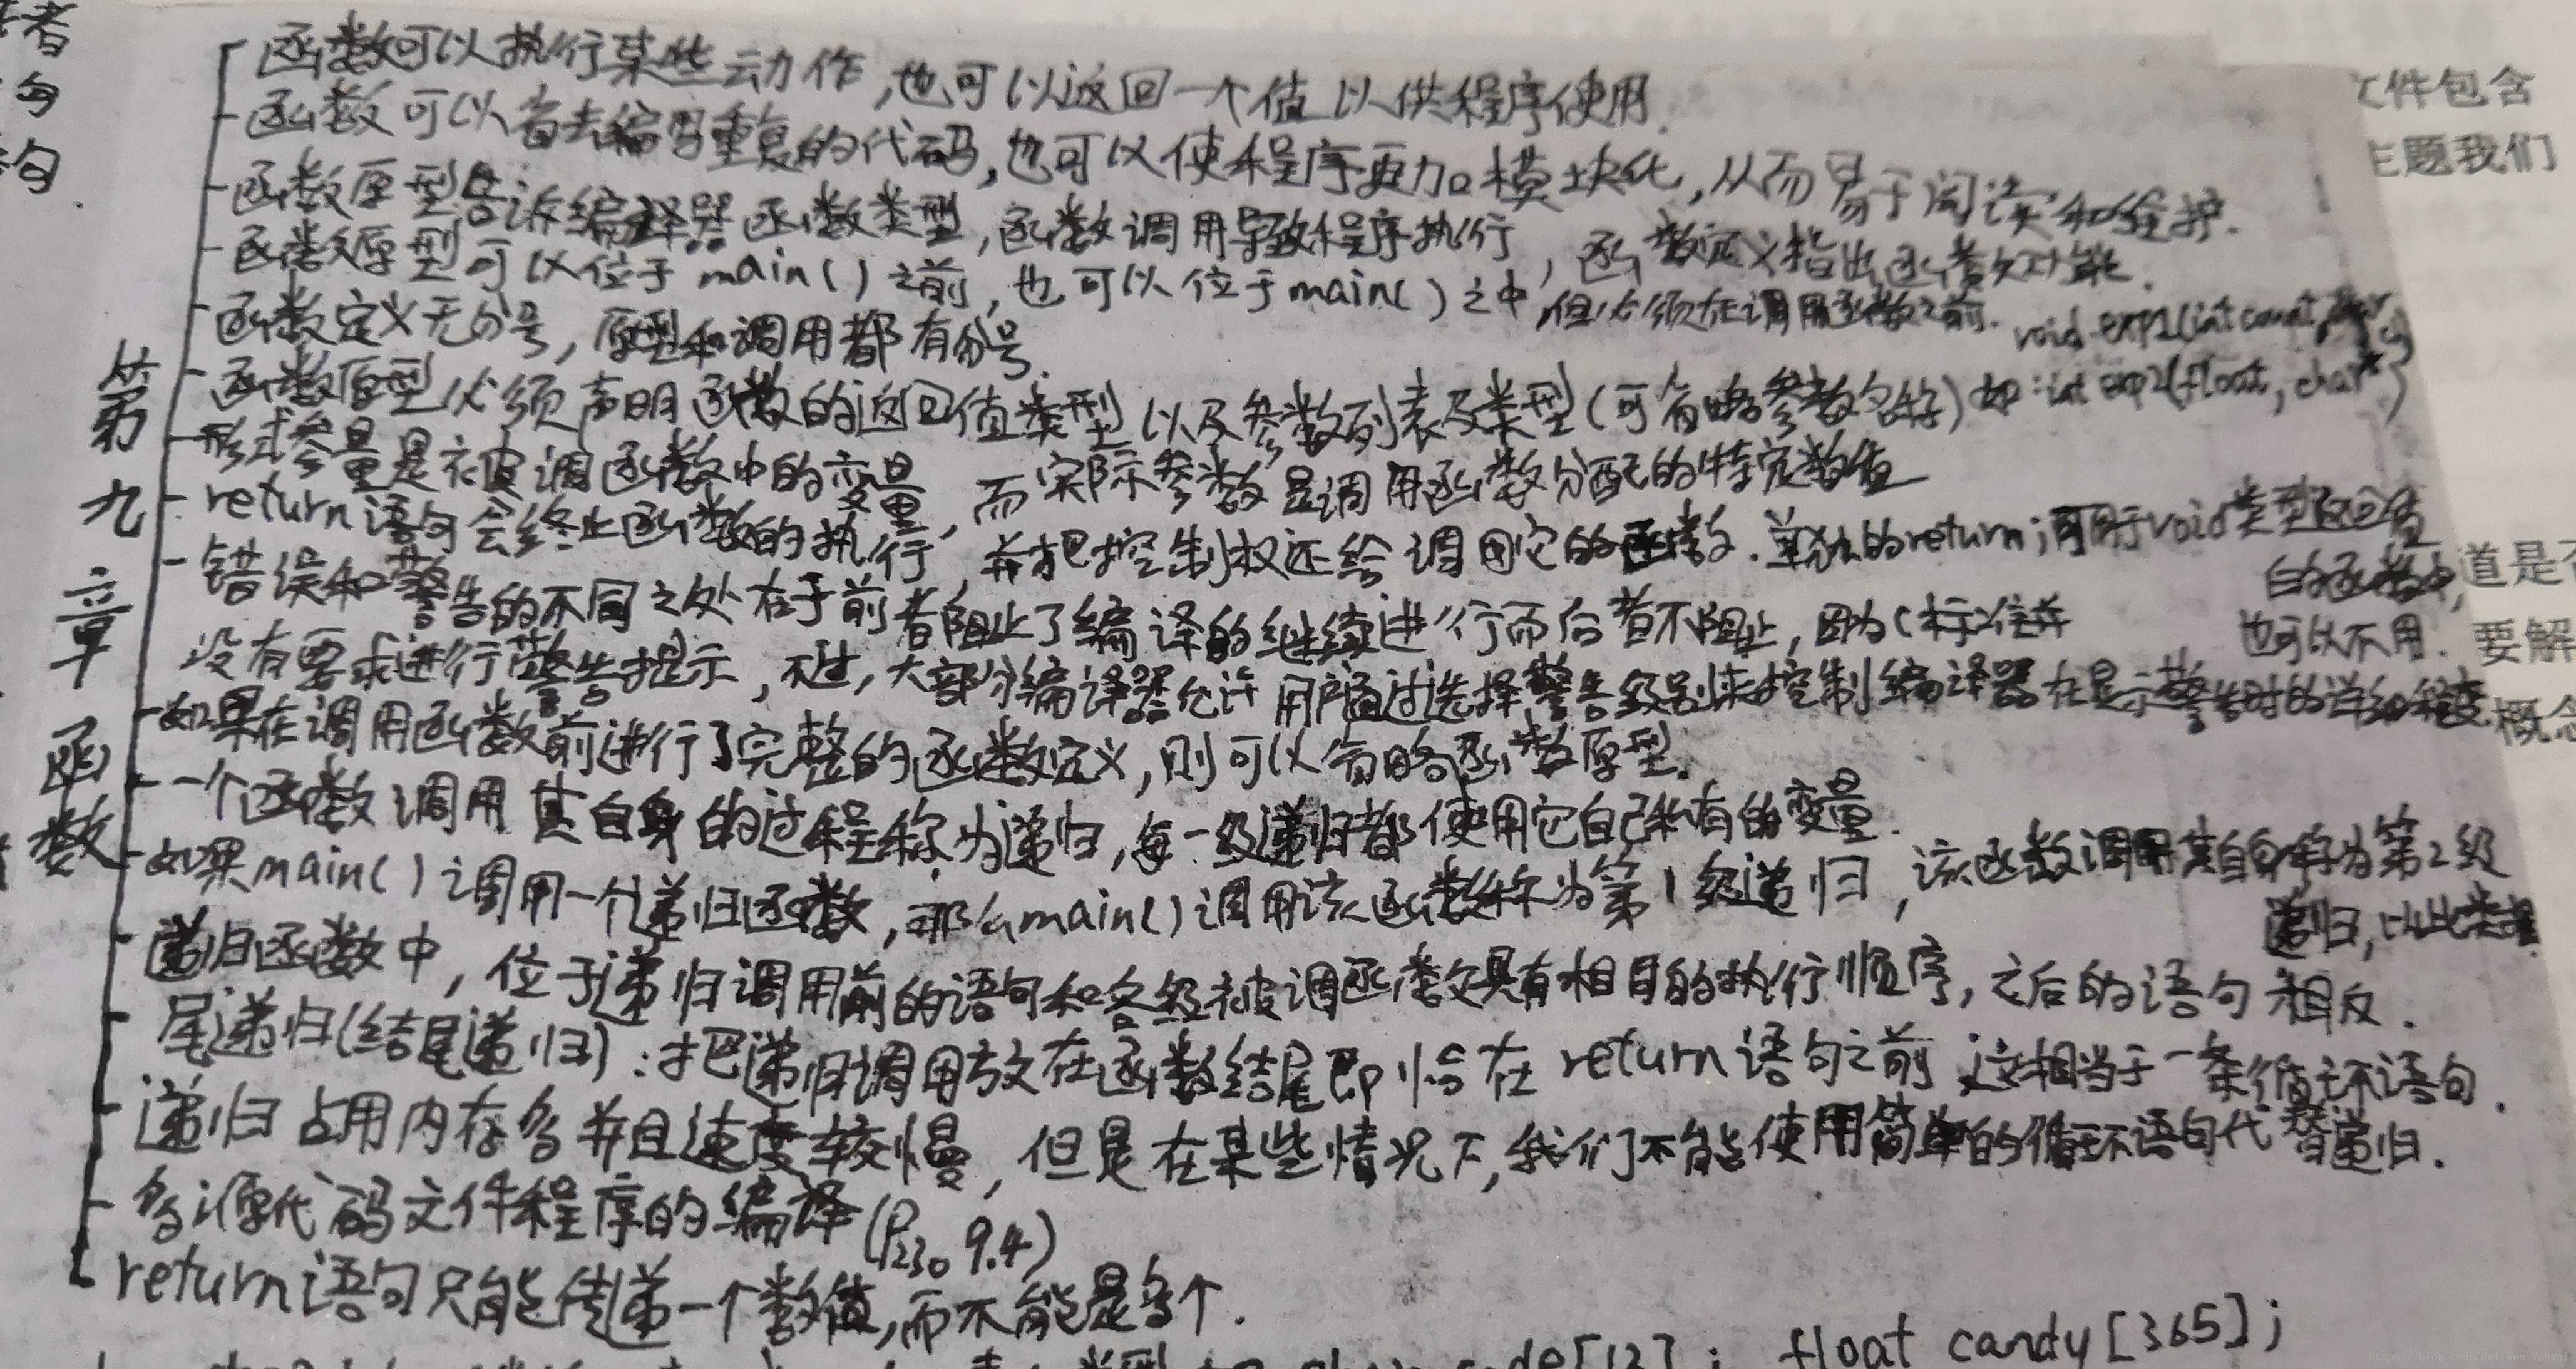 第九章 函数
函数可以执行某些动作,也可以返回一个值以供程序使用.
函数可以省去编写重复的代码,也可以使程序更加模块化,从而易于阅读和维护.
函数原型告诉编译器函数类型,函数调用导致程序执行,函数定义指出函数功能.
函数原型可以位于main()之前,也可以位于main()之中,但必须在调用函数之前.
函数定义无分号,原型和调用都有分号.
void exp1(int count,
函数原型必须声明函数的返回值类型以及参数列表及类型(可省略参数名称)如:int exp2(float,char*)
形式参量是被调函数中的变量,而实际参数是调用函数分配的特定数值
return语句会终止函数的执行,并把控制权还给调用它的函数.单独的return;可用于void类型返回值
的函数中,
也可以不用.
错误和警告的不同之处在于前者阻止了编译的继续进行而后者不阻止,因为C标准并
没有要求进行警告提示,不过,大部分编译器允许用户通过选择警告级别来控制编译器在显示警告时的详细程度
如果在调用函数前进行了完整的函数定义,则可以省略函数原型.
一个函数调用其自身的过程称为递归,每一级递归都使用它自己私有的变量.
如果main()调用一个递归函数,那么main()调用该函数称为第1级递归,该函数调用其自身称为第2级
递归,以此类推
递归函数中,位于递归调用前的语句和各级被调函数具有相同的执行顺序,之后的语句相反.
尾递归(结尾递归):把递归调用放在函数结尾即恰在return语句之前 这相当于一条循环语句.
递归占用内存多并且速度较慢,但是在某些情况下,我们不能使用简单的循环语句代替递归.
多源代码文件程序的编译(P230 9.4)
return语句只能传递一个数值,而不能是多个.
float candy[365];
者
句
句.
文件包含
主题我们
道是否
要解
概念